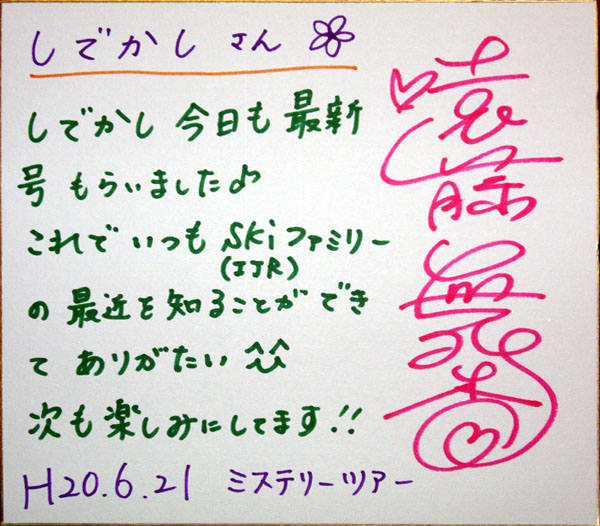 しでかし さん
しでかし 今日も 最新
号 もらいました♪
これで いつも Skiファミリー
(IJR)
の 最近を 知ることが でき
て ありがたい ^^
次も 楽しみにしてます!!
H20.6.21 ミステリーツアー